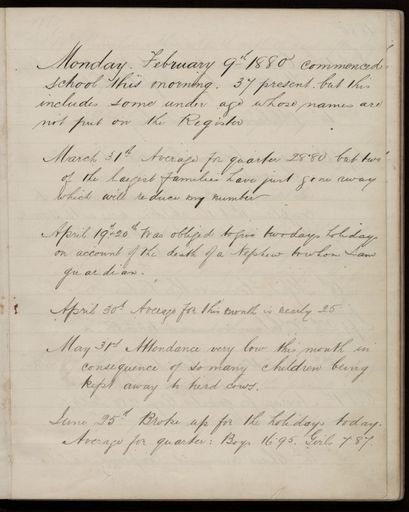 Monday. February 9th 1880 commenced
school this morning. 37 present but this
includes some under age whose names are
not put on the Register
March 31st Average for quarter 28.80 but two
of the largest families have just gone away
which will reduce my number
April 19th & 20th Was obliged to give two days holiday
on account of the death of a Nephew to whom I am
guardian.
April 30th Average for this month is nearly 25
May 31st Attendance very low this month in
consequence of so many children being
kept away to herd cows.
June 25th Broke up for the holidays today.
Average for quarter: Boys 16.95. Girls 7.87.